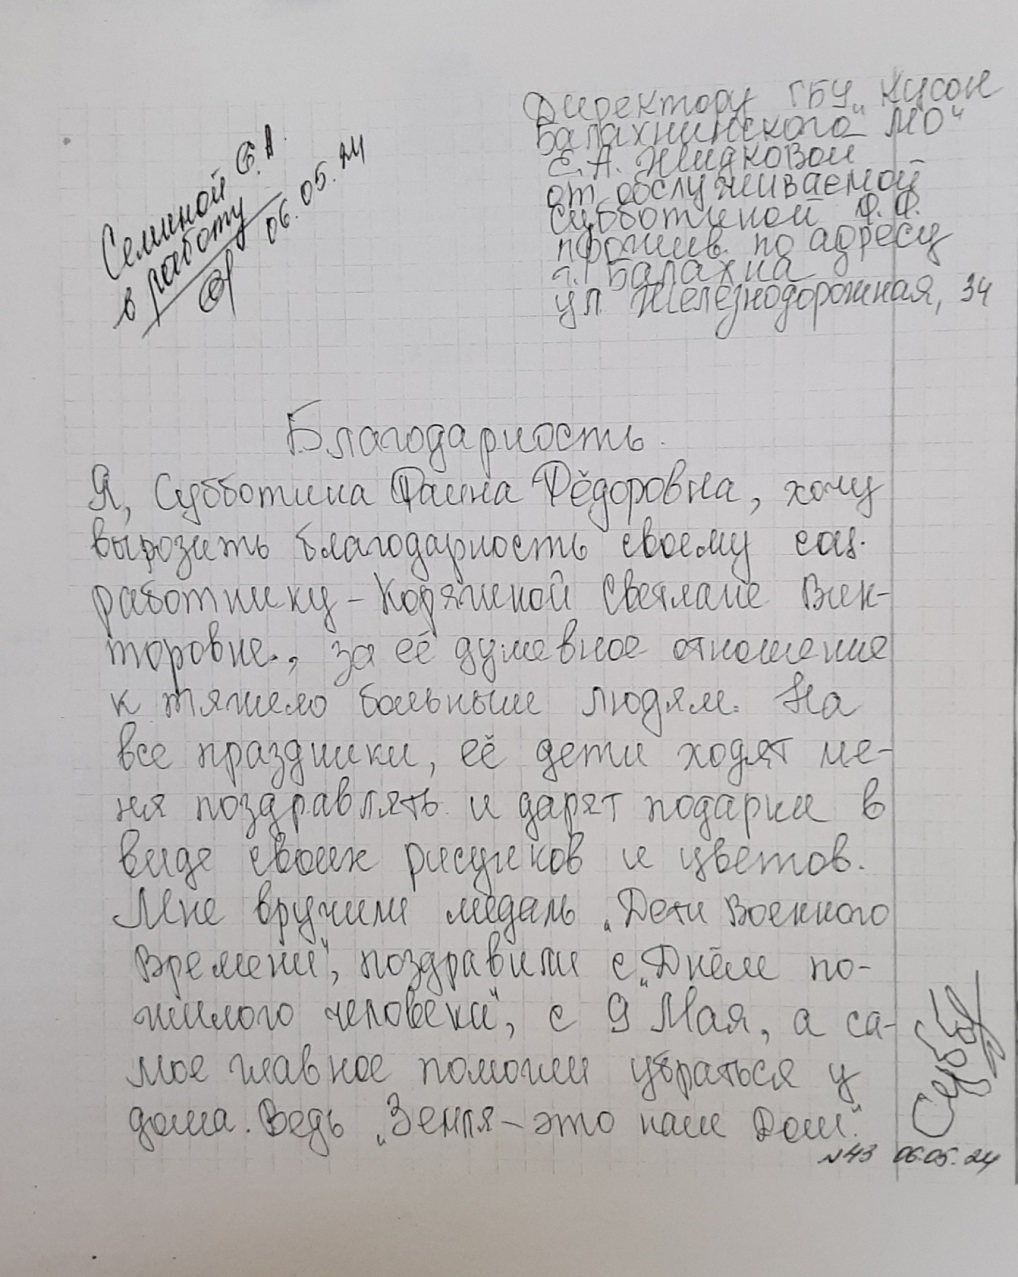 Директору ГБУ „КЦСОН
Балахнинского МО"
Е.А. Жидковой
от обслуживаемой
Субботиной Ф.Ф.
прожив. по адресу
г. Балахна
ул. Железнодорожная, 34
Семиной Е.А.
в работу
06.05.24
Благодарность.
Я, Субботина Фаина Фёдоровна, хочу
вырозить благодарность своему соц.
работнику – Корягиной Светлане Вик-
торовне., за её душевное отношение
к тяжело больным людям. На
все праздники, её дети ходят ме-
ня поздравлять и дарят подарки в
виде своих рисунков и цветов.
Мне вручили медаль „Дети Военного
Времени", поздравили с „Днём по-
жилого человека", с 9 Мая, а са-
мое главное помогли убраться у
дома. Ведь „Земля – это наш Дом".
Субб
№43 06.05.24